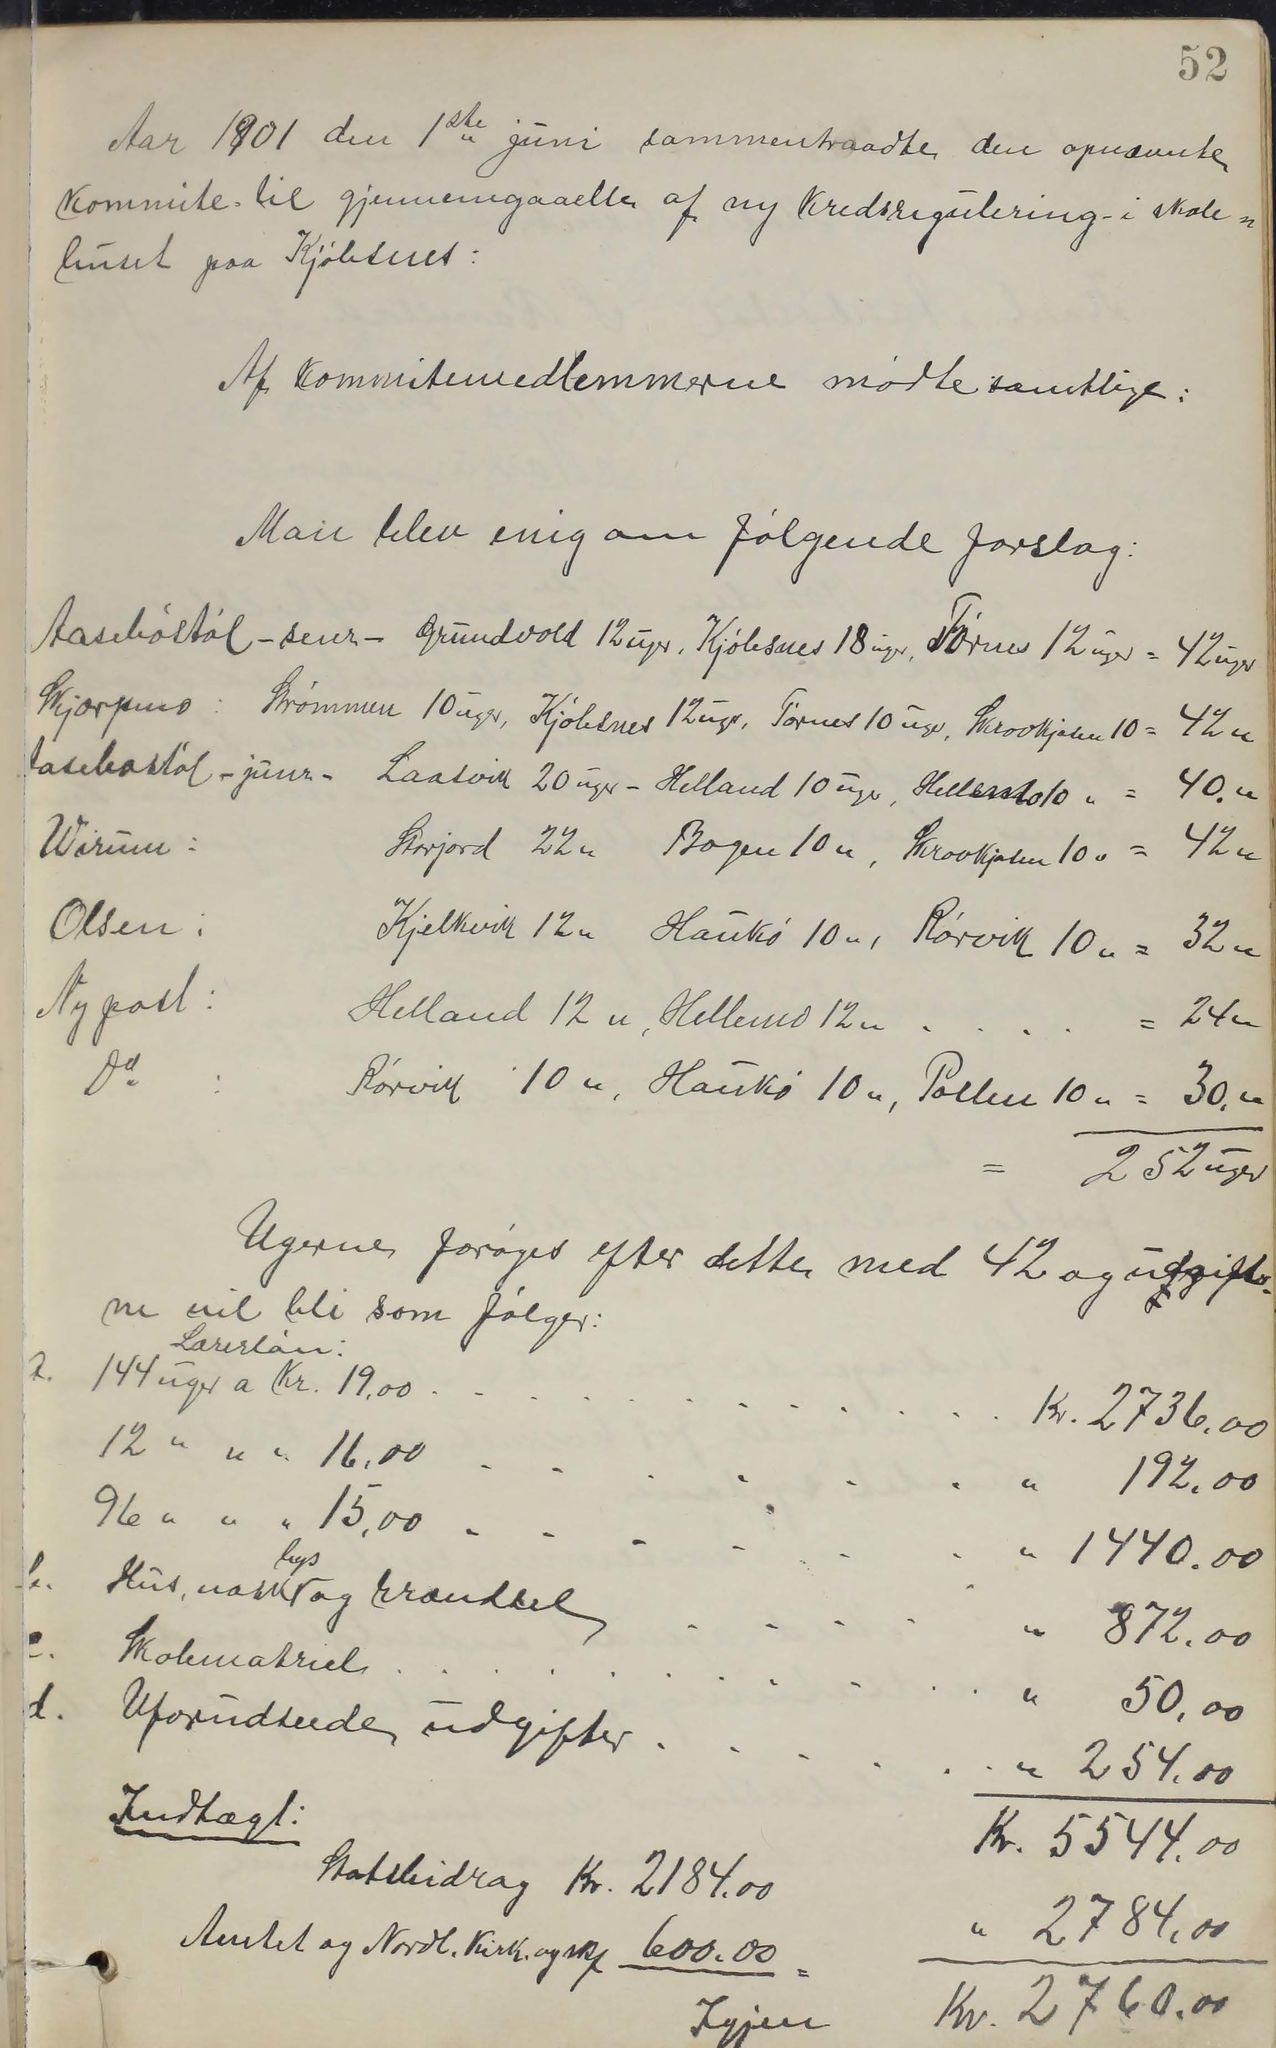 52
Aar 1901 den 1ste juni sammentraadte den opnævnte
kommite til gjennemgaaelle af ny Kredsregulering i skole=
huset paa Kjöbsnes:
Af kommitemedlemmerne mödte samtlige:
Man blev enig om fölgende forslag:
Aaseböstöl - senr - Grundvold 12 uger, Kjöbsnes 18 uger, Törnes 12 uger = 42 uger
Skjærpmo: Strømmen 10 uger, Kjöbsnes 12 uger, Törnes 10 uger, Skrovkjosen 10 = 42 "
Aasebostöl - junr - Laasvik 20 uger - Helland 10 uger, Hellemo 10 " = 40. "
Wirum: Storjord 22 " Bogen 10 ", Skrovkjosen 10 " = 42 "
Olsen: Kjelkvik 12 " Haukö 10 ", Rörvik 10 " = 32 "
Ny post: Helland 12 ", Hellemo 12 " . . . . = 24 "
Do : Rörvik 10 ", Haukö 10 ", Pollen 10 " = 30. "
= 252 uger
Ugerne forøges efter dette med 42 og udgifter-
ne vil bli som fölger:
Lærerlön:
a. 144 uger a Kr. 19.00 . . . . . . . . Kr. 2736.00
12 " " " 16.00 . . . . . . " 192.00
96 " " " 15.00 . . . . . . " 1440.00
b. Hus, vask lys og brændsel . . . . " 872.00
c. Skolematriel . . . . . . . . " 50.00
d. Uforudseede udgifter . . . . . " 254.00
Kr. 5544.00
Indtægt:
Statsbidrag Kr. 2184.00
Amtet og Nordl. Kirk. og skf 600.00 = " 2784.00
Igjen Kr. 2760.00